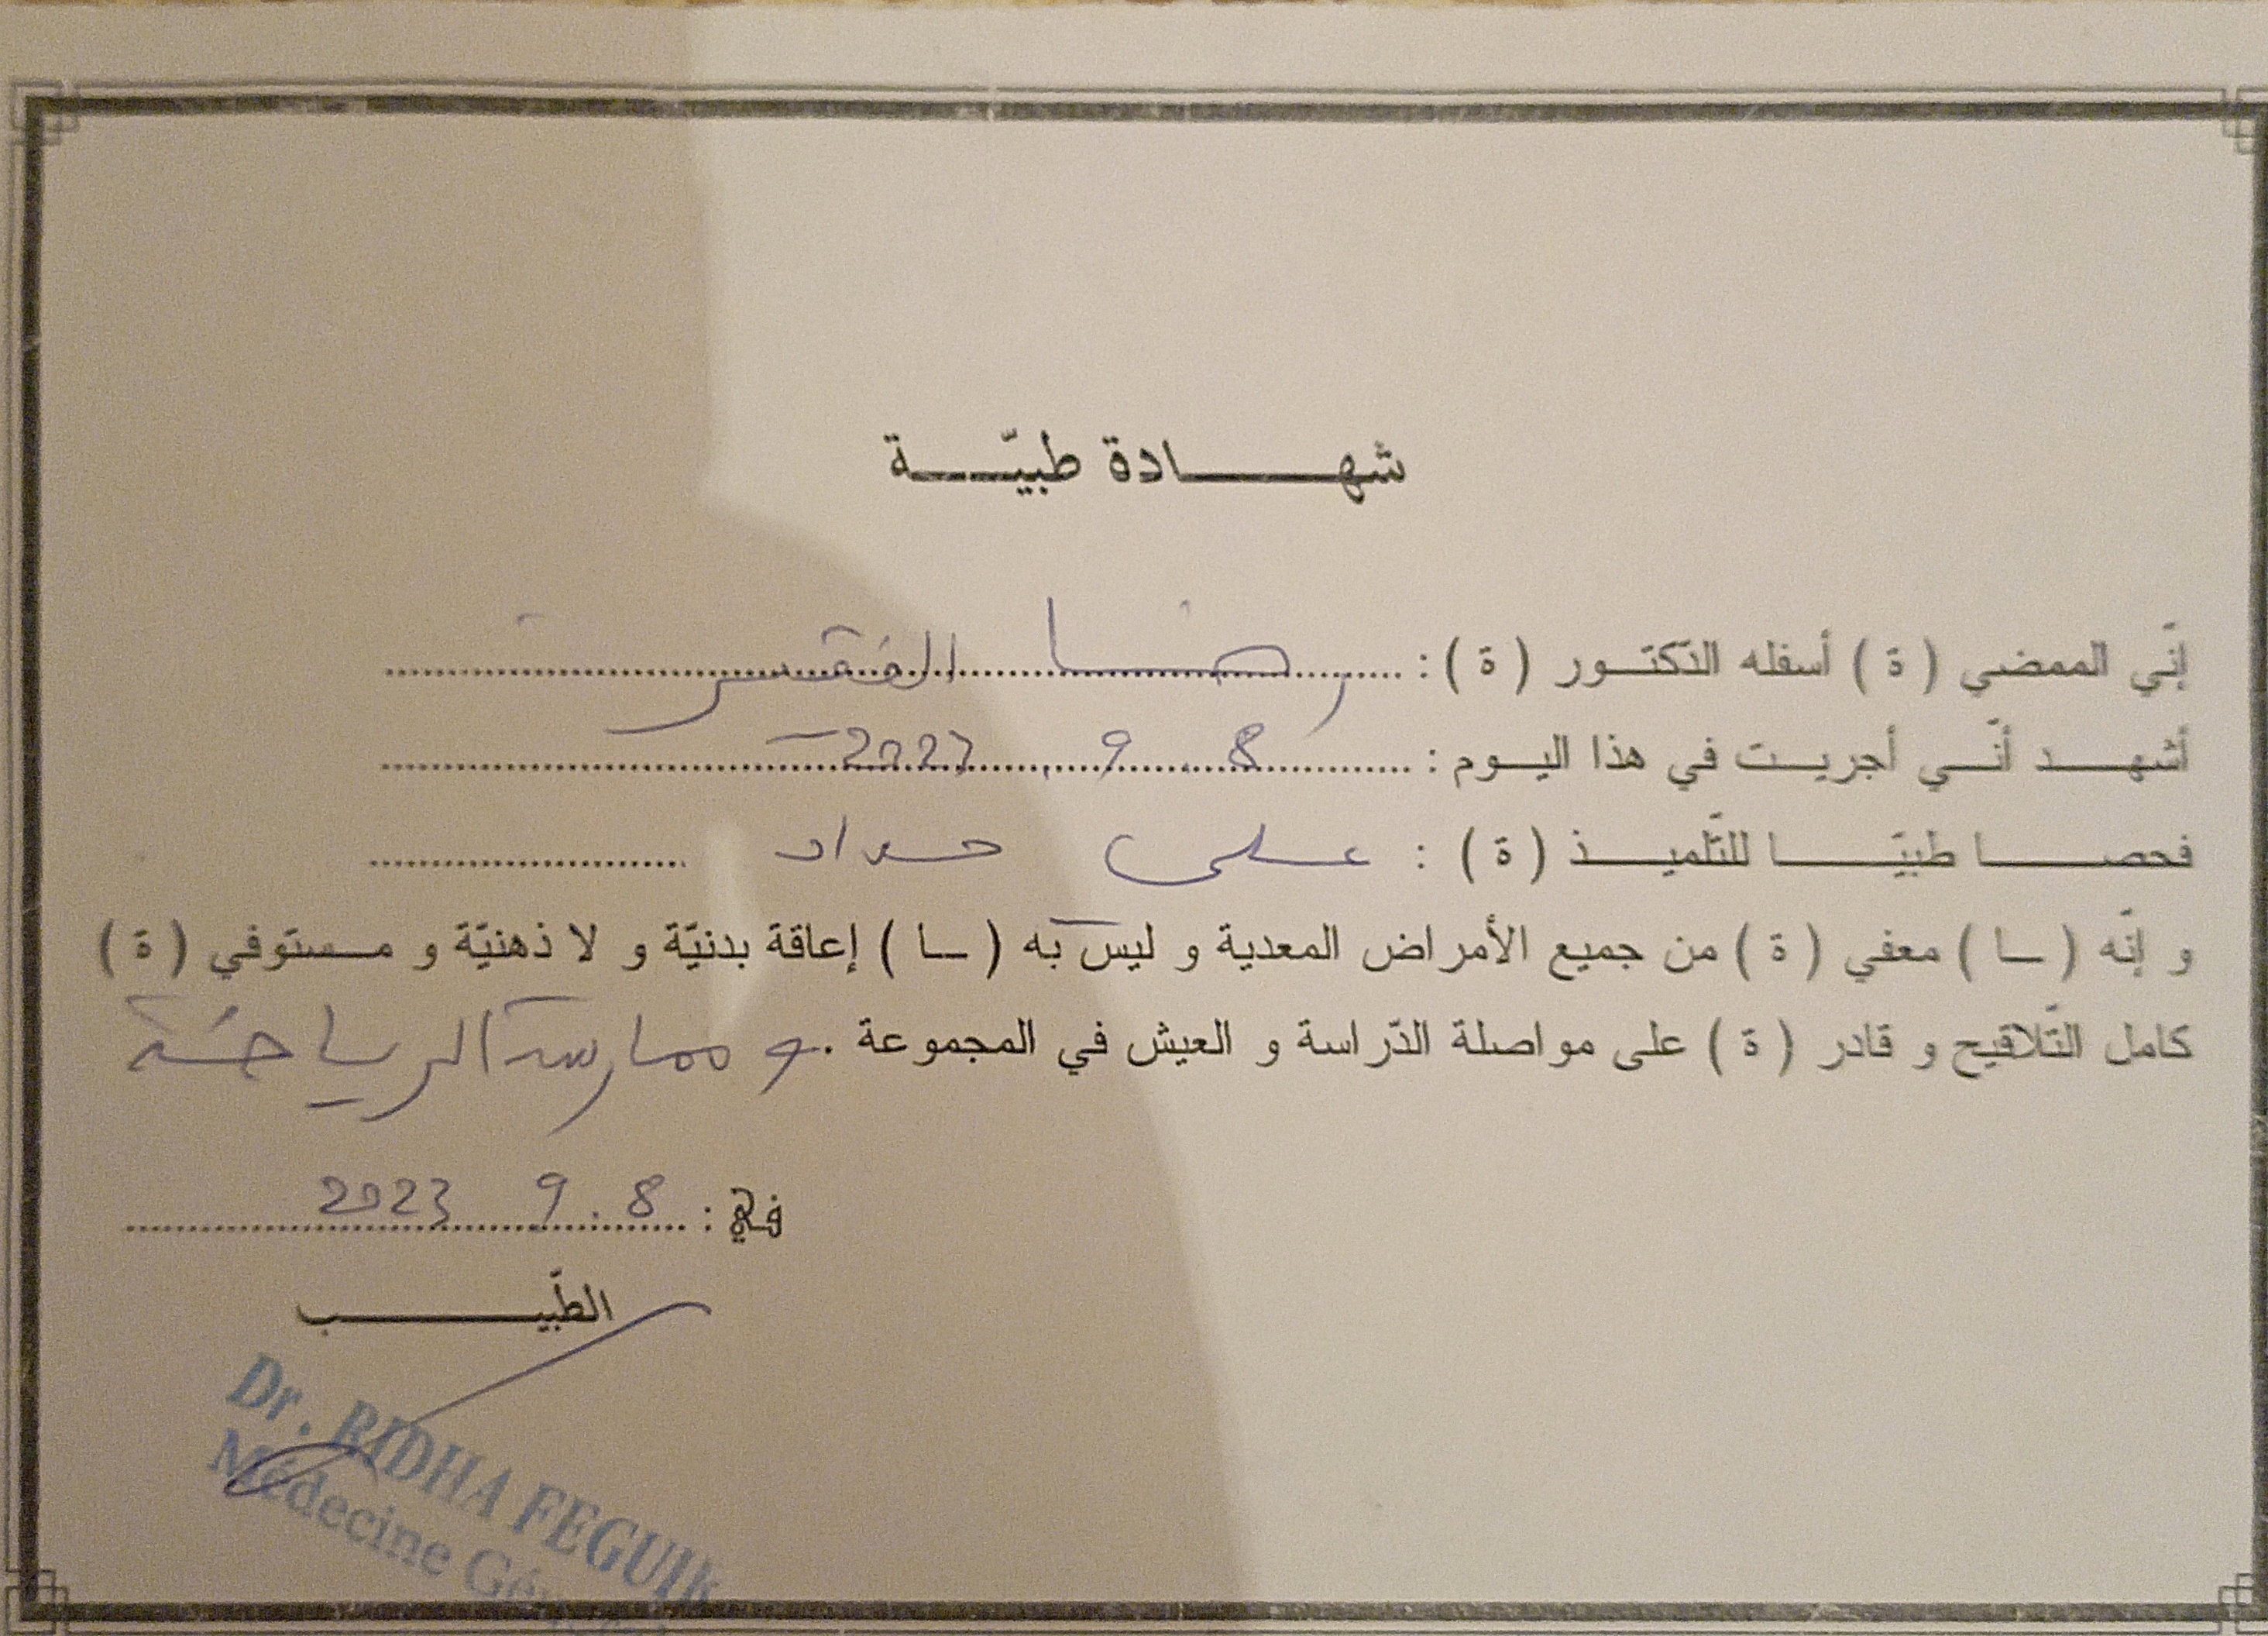 شهادة طبيّة
إنّي الممضي ( ة ) أسفله الدّكتور ( ة ) : رضا الفقير
أشهد أنّي أجريت في هذا اليوم : 8 . 9 . 2023
فحصا طبيّا للتّلميذ ( ة ) : علي حداد
و إنّه ( ـا ) معفي ( ة ) من جميع الأمراض المعدية و ليس به ( ـا ) إعاقة بدنيّة و لا ذهنيّة و مستوفي ( ة )
كامل التّلاقيح و قادر ( ة ) على مواصلة الدّراسة و العيش في المجموعة . و ممارسة الرياضة
في : 8 . 9 2023
الطّبيب
Dr. RIDHA FEGUIR
Médecine